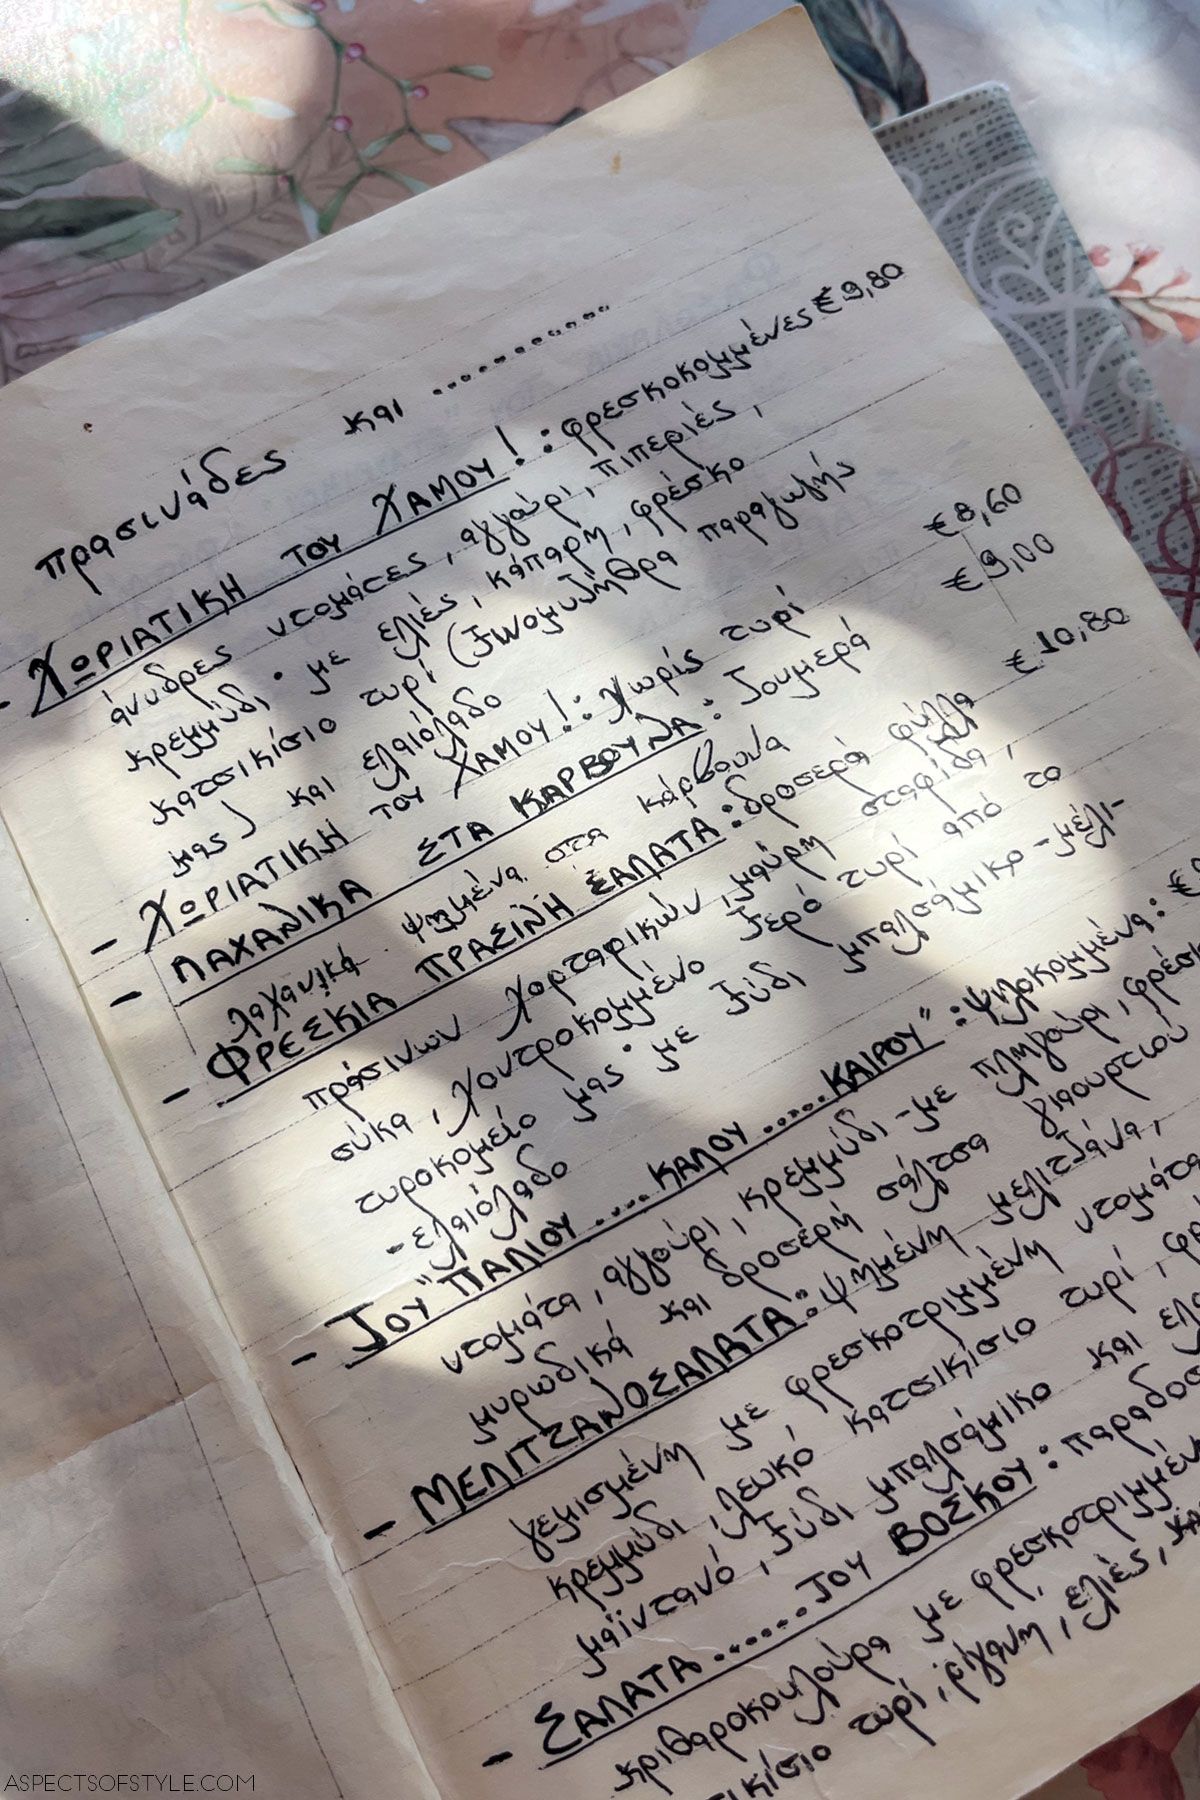 πρασινάδες και ...........
- ΧΩΡΙΑΤΙΚΗ ΤΟΥ ΧΑΜΟΥ! : φρεσκοκομμένες €9,80
άνυδρες ντομάτες, αγγούρι, πιπεριές,
κρεμμύδι · με ελιές, κάπαρη, φρέσκο
κατσικίσιο τυρί (ξινομυζήθρα παραγωγής
μας) και ελαιόλαδο
- ΧΩΡΙΑΤΙΚΗ ΤΟΥ ΧΑΜΟΥ! : Χωρίς τυρί €8,60
- ΛΑΧΑΝΙΚΑ ΣΤΑ ΚΑΡΒΟΥΝΑ : ζουμερά €9,00
λαχανικά ψημένα στα κάρβουνα
- ΦΡΕΣΚΙΑ ΠΡΑΣΙΝΗ ΣΑΛΑΤΑ : δροσερά φύλλα €10,80
πράσινων χορταρικών, μαύρη σταφίδα,
σύκα, χοντροκομμένο ξερό τυρί από το
τυροκομείο μας · με ξύδι μπαλσάμικο - μέλι -
- ελαιόλαδο
- ΤΟΥ "ΠΑΛΙΟΥ .... ΚΑΛΟΥ ..... ΚΑΙΡΟΥ" : ψιλοκομμένα : €
ντομάτα, αγγούρι, κρεμμύδι - με πληγούρι,
μυρωδικά και δροσερή σάλτσα γιαουρτιού
- ΜΕΛΙΤΖΑΝΟΣΑΛΑΤΑ : ψημένη μελιτζάνα,
γεμισμένη με φρεσκοτριμμένη ντομάτα
κρεμμύδι, λευκό κατσικίσιο τυρί,
μαϊντανό, ξύδι μπαλσάμικο και
- ΣΑΛΑΤΑ ...... ΤΟΥ ΒΟΣΚΟΥ :
κριθαροκουλούρα με
τυρί, ρίγανη, ελιές,
ASPECTSOFSTYLE.COM